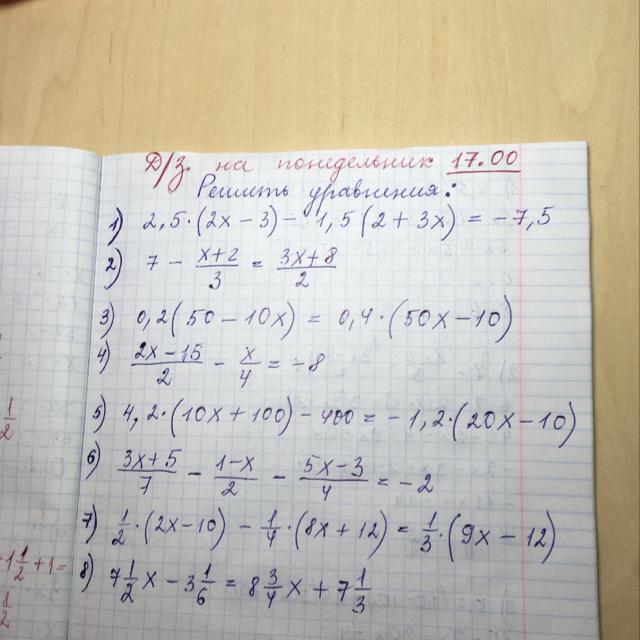 Д/з. на понедельник 17.00
Решить уравнения:
1) 2,5·(2x − 3) − 1,5(2 + 3x) = −7,5
2) 7 − (x+2)/3 = (3x+8)/2
3) 0,2(50 − 10x) = 0,4·(50x − 10)
4) (2x − 15)/2 − x/4 = −8
5) 4,2·(10x + 100) − 400 = −1,2·(20x − 10)
6) (3x+5)/7 − (1−x)/2 − (5x−3)/4 = −2
7) 1/2·(2x−10) − 1/4·(8x + 12) = 1/3·(9x − 12)
8) 7 1/2 x − 3 1/6 = 8 3/4 x + 7 1/3
1/2
1 1/2 + 1 =
1/2